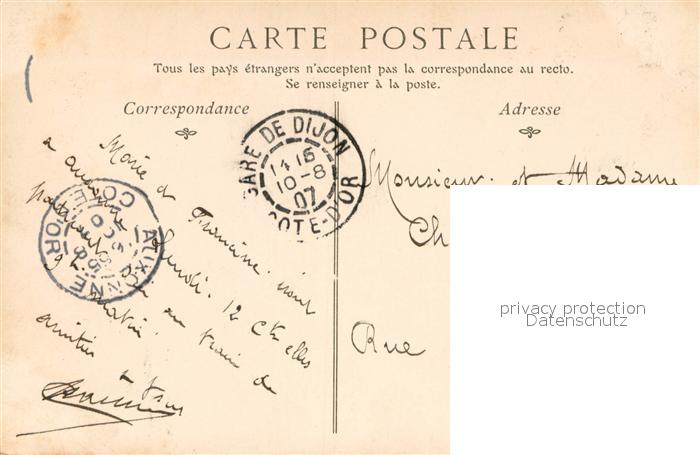 CARTE POSTALE
Tous les pays étrangers n'acceptent pas la correspondance au recto.
Se renseigner à la poste.
Correspondance
Adresse
GARE DE DIJON
14 15
10-8
07
COTE-D'OR
Marie et Francine iront
à Auxonne Lundi. 12 Ct elles
au train de
9h matin.
amitiés à tous
AUXONNE
COTE D'OR
Monsieur et Madame
Ch
Rue
privacy protection
Datenschutz